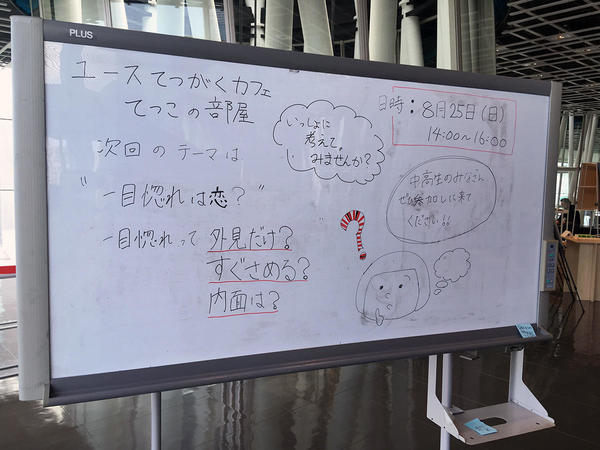 PLUS
ユースてつがくカフェ
てつこの部屋
日時：8月25日(日)
14:00~16:00
いっしょに
考えて
みませんか？
次回のテーマは
"一目惚れは恋？"
中高生のみなさん
ぜひ参加しに来て
ください!!
一目惚れって 外見だけ？
すぐさめる？
内面は？
?